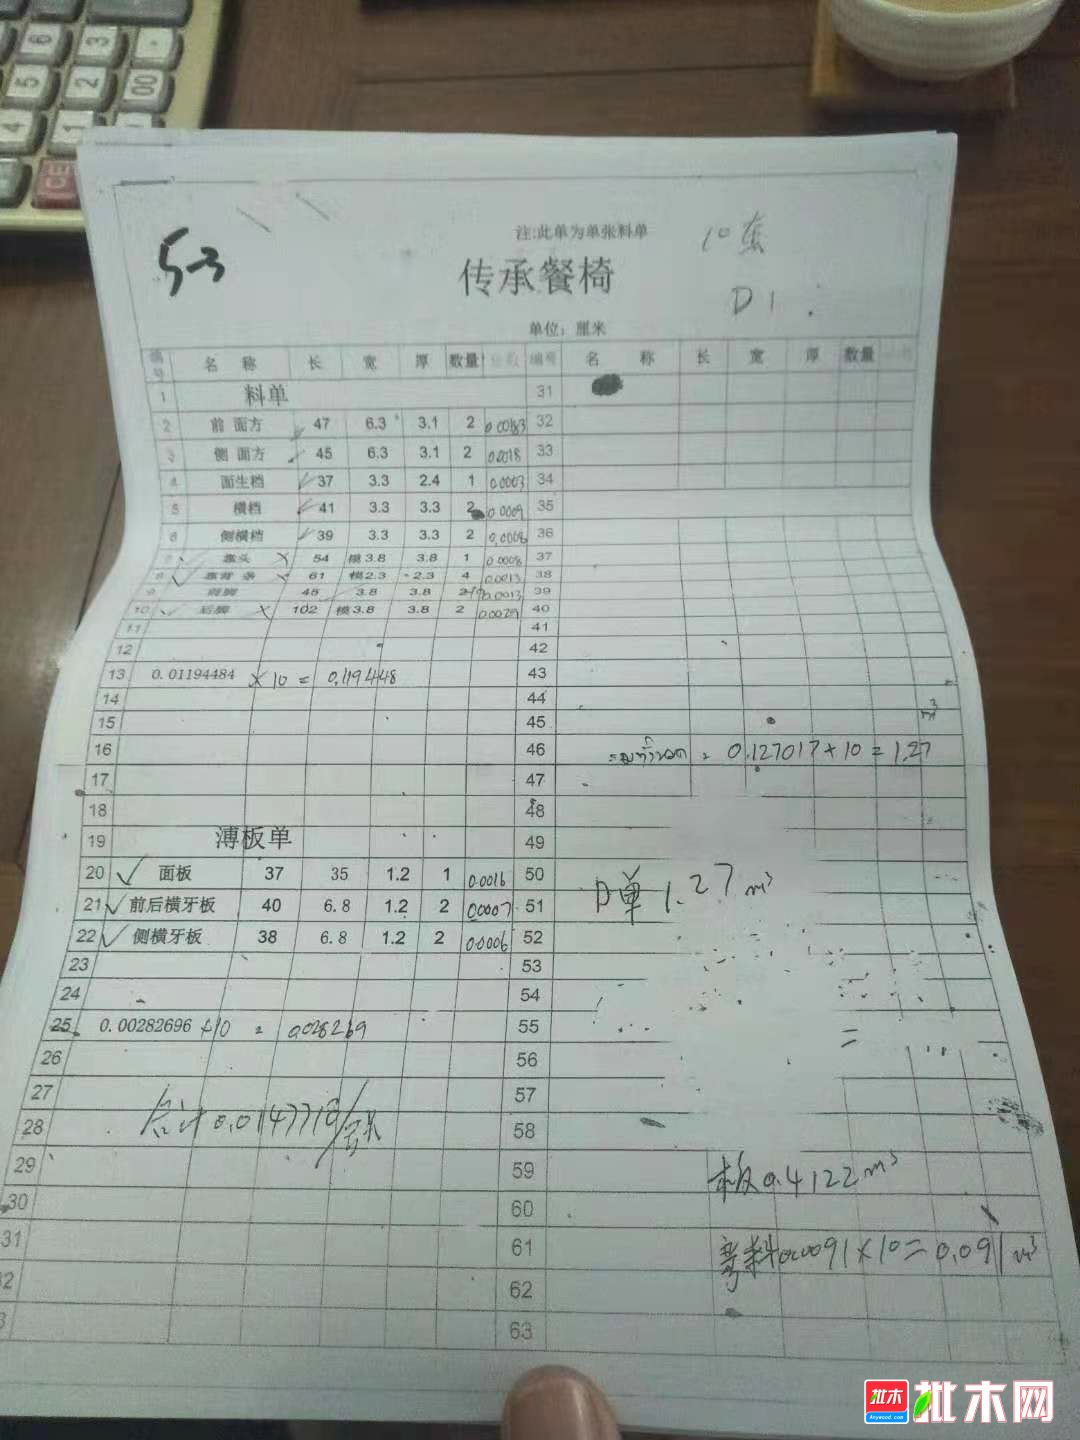 6 3 -
5 2 00
4 1
CE
5-3
注:此单为单张料单
10套
传承餐椅
D1
单位：厘米
编号 名 称 长 宽 厚 数量 编号 名 称 长 宽 厚 数量
1 料单 31
2 前 面方 47 6.3 3.1 2 0.00183 32
3 侧 面方 45 6.3 3.1 2 0.0018 33
4 面生档 37 3.3 2.4 1 0.0003 34
5 横档 41 3.3 3.3 2 0.0009 35
6 侧横档 39 3.3 3.3 2 0.0008 36
7 靠头 54 模3.8 3.8 1 0.0008 37
8 靠背 条 61 模2.3 2.3 4 0.0013 38
9 前脚 45 3.8 3.8 2 0.0013 39
10 后脚 102 模3.8 3.8 2 0.0029 40
11 41
12 42
13 0.01194484 × 10 = 0.119448 43
14 44
15 45 m³
16 46 0.127017 × 10 = 1.27
17 47
18 48
19 薄板单 49
20 面板 37 35 1.2 1 0.0016 50
21 前后横牙板 40 6.8 1.2 2 0.0007 51 D单 1.27 m³
22 侧横牙板 38 6.8 1.2 2 0.0006 52
23 53
24 54
25 0.00282696 ×10 = 0.028269 55 =
26 56
27 57
28 合计0.0147718/套 58
29 59 板0.4122m³
30 60
31 61 弯料0.0091×10=0.091m³
62
63
批木
Anywood.com
批木网